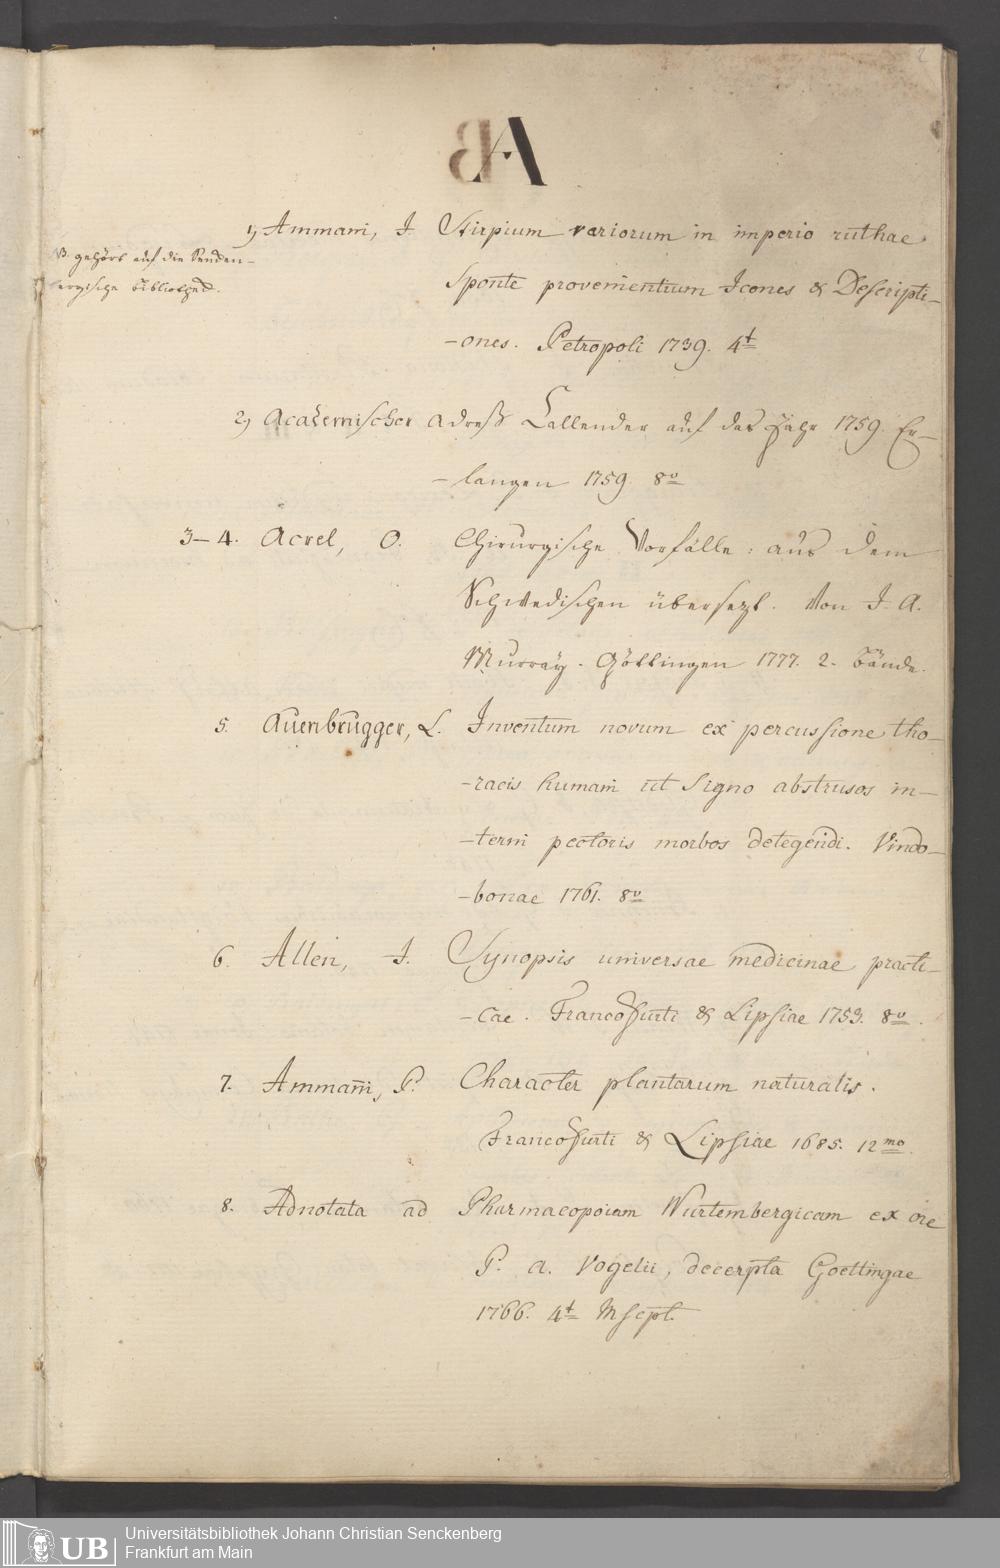 2
A
1) Ammani, I. Stirpium variorum in imperio ruthae
NB. gehört auf die Senken-
bergische Bibliothec.
sponte provenientium Icones & Descripti-
-ones. Petropoli 1739. 4t
2) Academischer Adreß Callender auf das Jahr 1759. Er-
-langen 1759. 8o
3–4. Acrel, O. Chirurgische Vorfälle: aus dem
Schwedischen übersezt. Von I. A.
Murray. Göttingen 1777. 2. Bände.
5. Auenbrugger, L. Inventum novum ex percussione tho-
-racis humani ut signo abstrusos in-
-terni pectoris morbos detegendi. Vindo-
-bonae 1761. 8o
6. Allen, I. Synopsis universae medicinae practi-
-cae. Francofurti & Lipsiae 1753. 8o.
7. Ammani, P. Character plantarum naturalis.
Francofurti & Lipsiae 1685. 12mo.
8. Adnotata ad Pharmacopoiam Wurtembergicam ex ore
P. A. Vogelii, decerpta Goettingae
1766. 4t Mscpt.
UB
Universitätsbibliothek Johann Christian Senckenberg
Frankfurt am Main